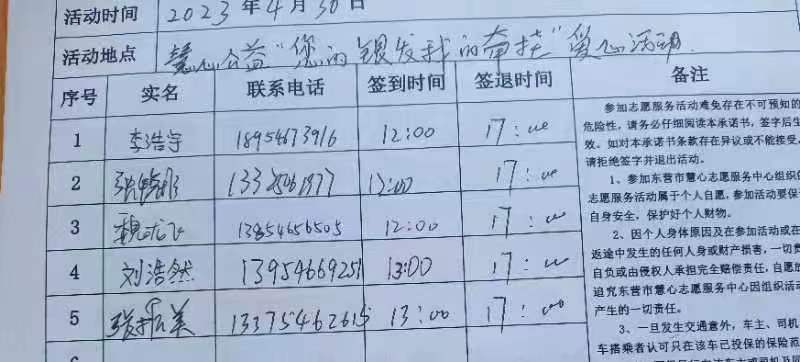 活动时间 2023年4月30日
活动地点 慧心公益"您的银发我的牵挂"爱心活动
序号 实名 联系电话 签到时间 签退时间 备注
1 李浩宇 18954673916 12:00 17:00
2 张 12:00 17:00
3 魏 13854656505 12:00 17:00
4 刘浩然 13954669251 13:00 17:00
5 张振美 13375462615 13:00 17:00
参加志愿服务活动难免存在不可预知的
危险性,请务必仔细阅读本承诺书,签字后生
效。如对本承诺书条款存在异议或不能接受,
请拒绝签字并退出活动。
1、参加东营市慧心志愿服务中心组织的
志愿服务活动属于个人自愿,参加活动要保
自身安全,保护好个人财物。
2、因个人身体原因及在参加活动或在
返途中发生的任何人身或财产损害,一切责
自负或由侵权人承担完全赔偿责任,自愿放
追究东营市慧心志愿服务中心因组织活动
产生的一切责任。
3、一旦发生交通意外,车主、司机
车搭乘者认可只在该车已投保的保险范